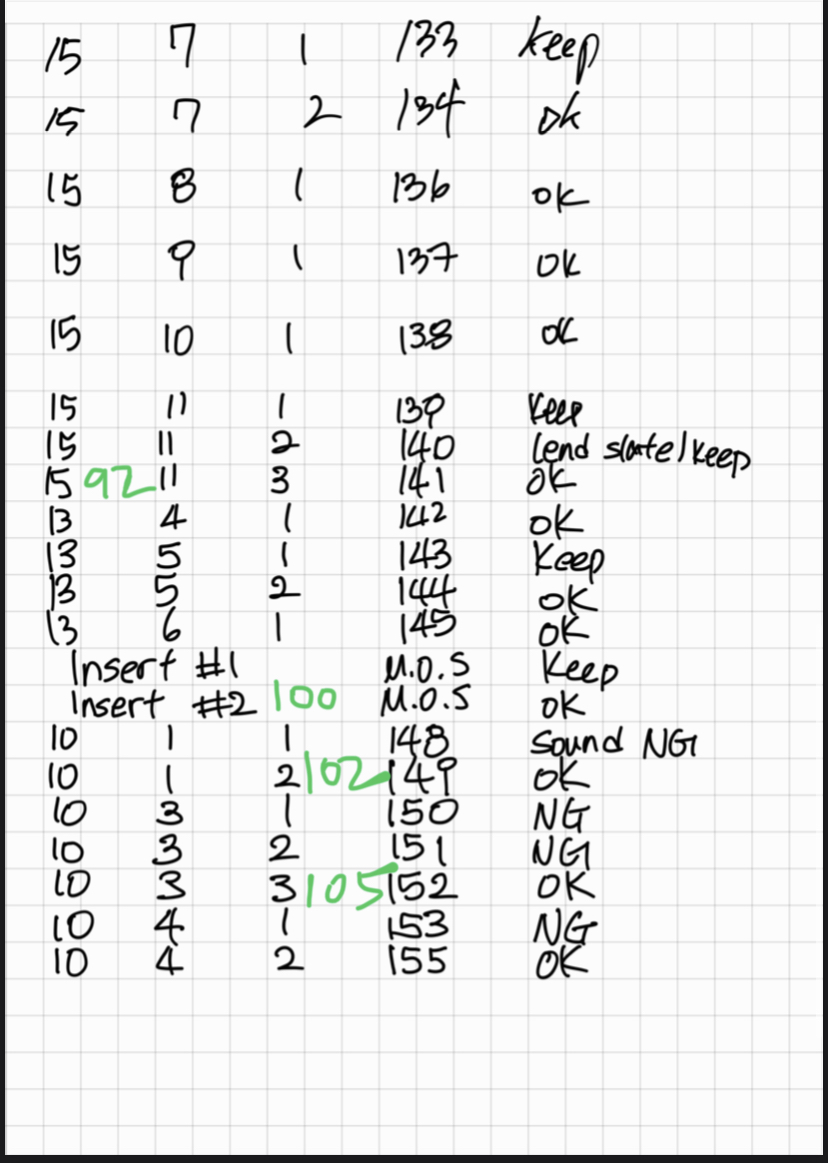 15 7 1 133 keep
15 7 2 134 ok
15 8 1 136 ok
15 9 1 137 ok
15 10 1 138 ok
15 11 1 139 keep
15 11 2 140 lend slate/keep
15 92 11 3 141 ok
13 4 1 142 ok
13 5 1 143 keep
13 5 2 144 ok
13 6 1 145 ok
Insert #1 M.O.S keep
Insert #2 100 M.O.S ok
10 1 1 148 sound NG
10 1 2 102 149 ok
10 3 1 150 NG
10 3 2 151 NG
10 3 3 105 152 OK
10 4 1 153 NG
10 4 2 155 OK